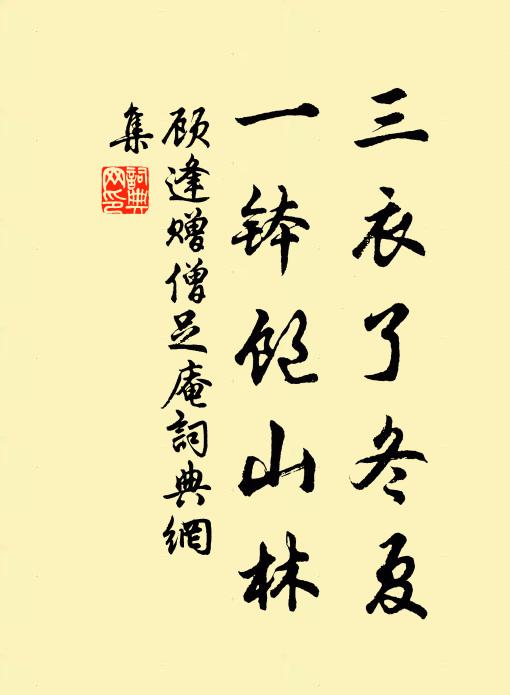 三衣了冬夏
一钵饱山林
顾逢赠僧足庵詞典網
集
詞典
网印